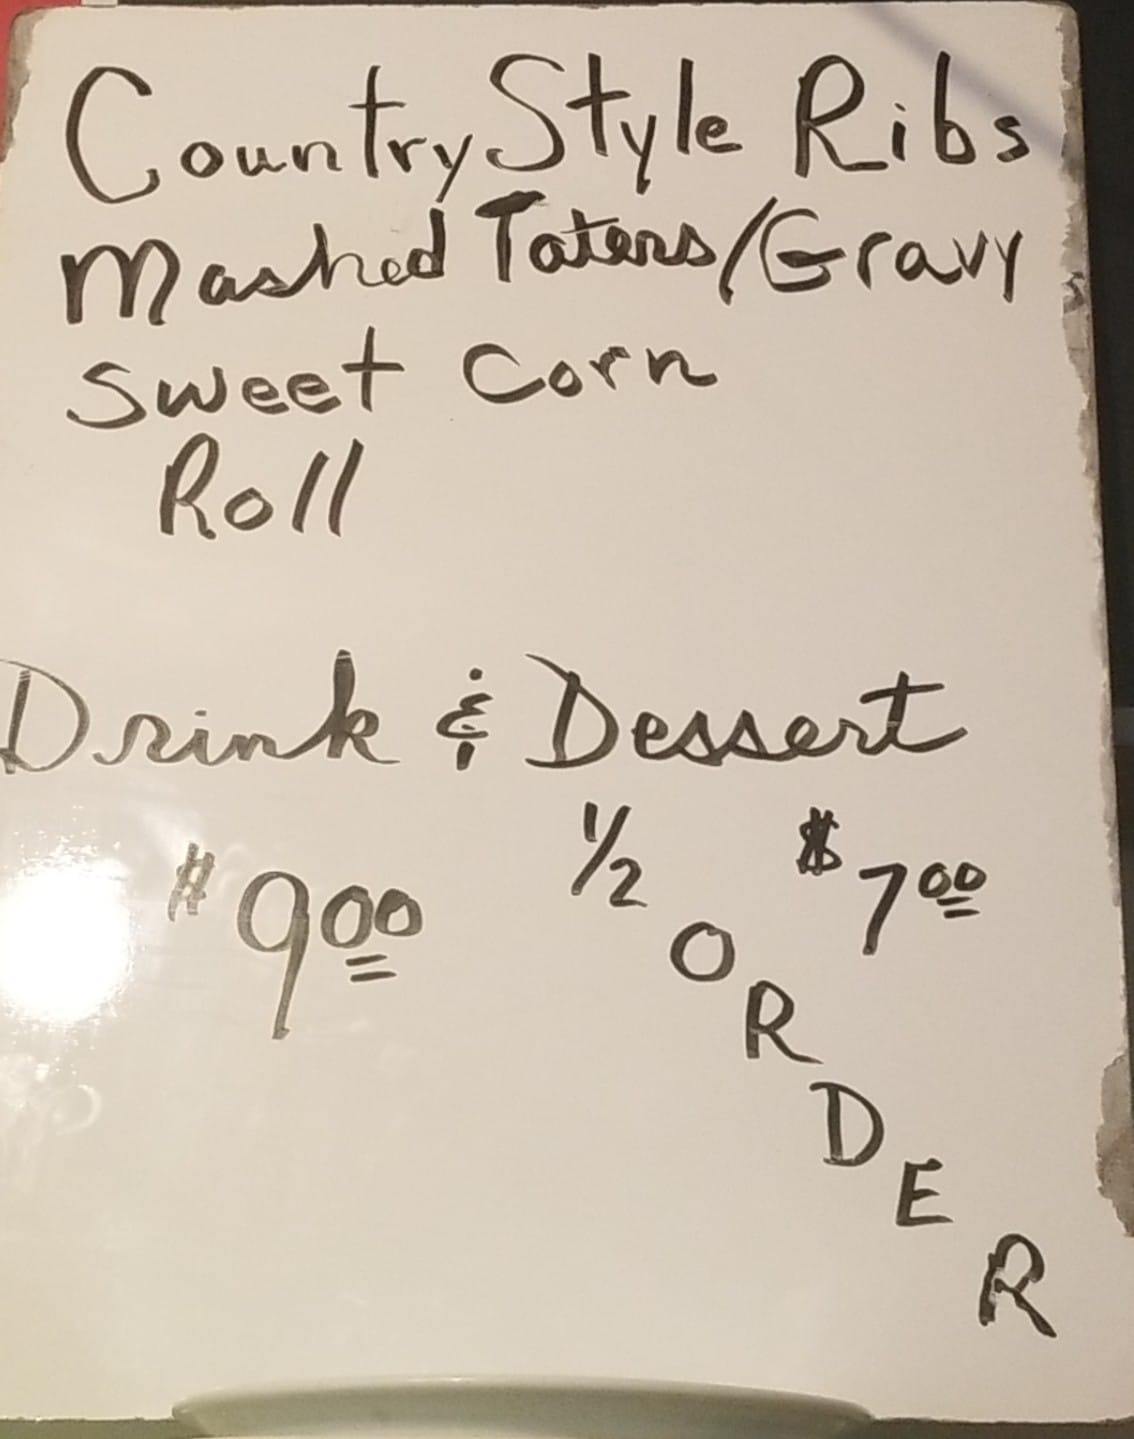 Country Style Ribs
Mashed Taters/Gravy
Sweet Corn
Roll
Drink & Dessert
$9.00 1/2 ORDER $7.00